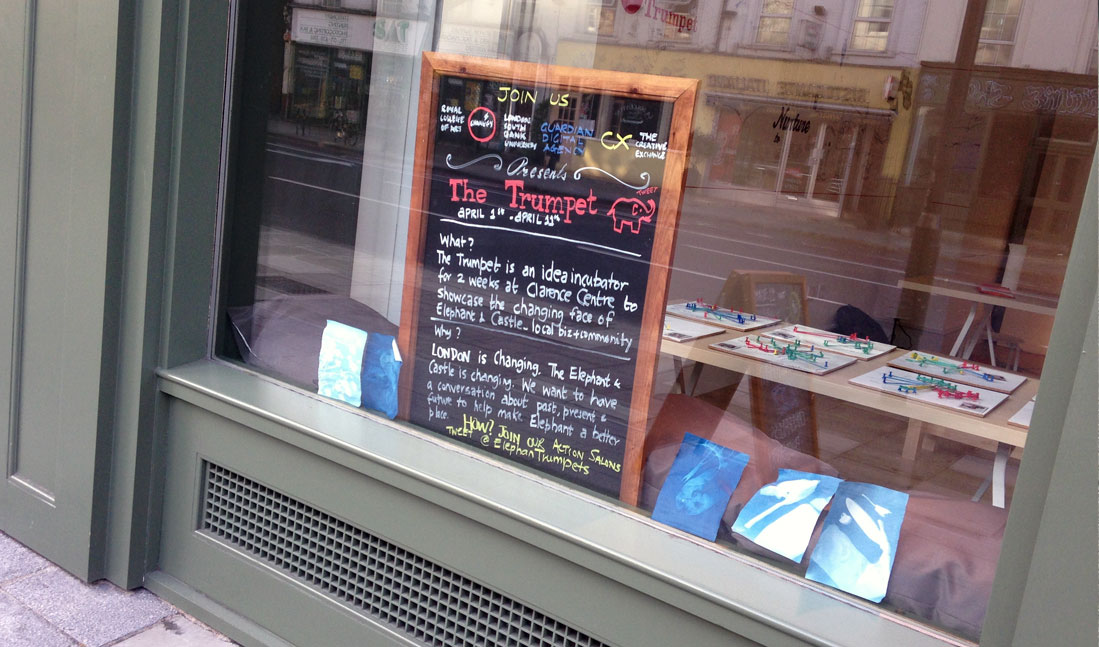 JOIN US
ROYAL COLLEGE OF ART
LONDON SOUTH BANK UNIVERSITY
GUARDIAN DIGITAL AGENCY
CX THE CREATIVE EXCHANGE
Presents
The Trumpet
TWEET
APRIL 1st - APRIL 11th
What?
The Trumpet is an idea incubator
for 2 weeks at Clarence Centre to
showcase the changing face of
Elephant & Castle - local biz + community
Why?
LONDON is Changing. The Elephant &
Castle is changing. We want to have
a conversation about past, present &
future to help make Elephant a better
place.
HOW? JOIN OUR ACTION SALONS
TWEET @ElephanTrumpets
Trumpet
Nurture